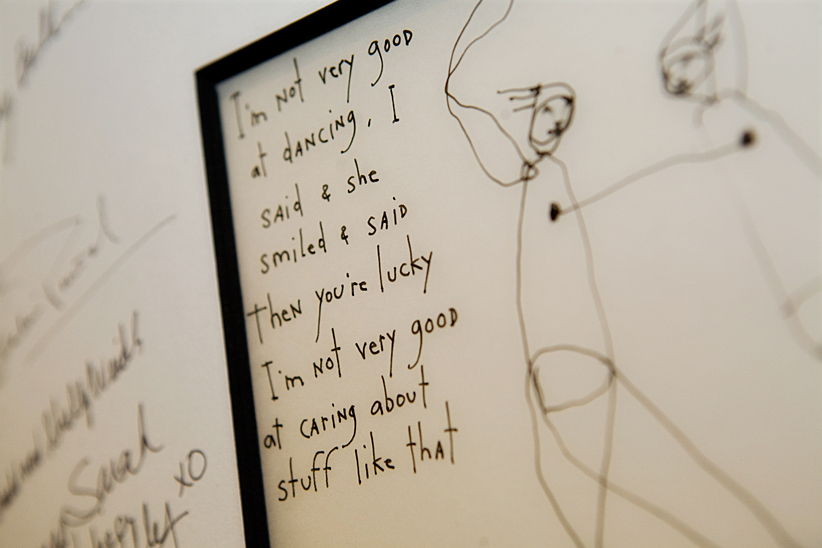 I'm not very good
at dancing, I
said & she
smiled & said
then you're lucky
I'm not very good
at caring about
stuff like that
Sarah
xo